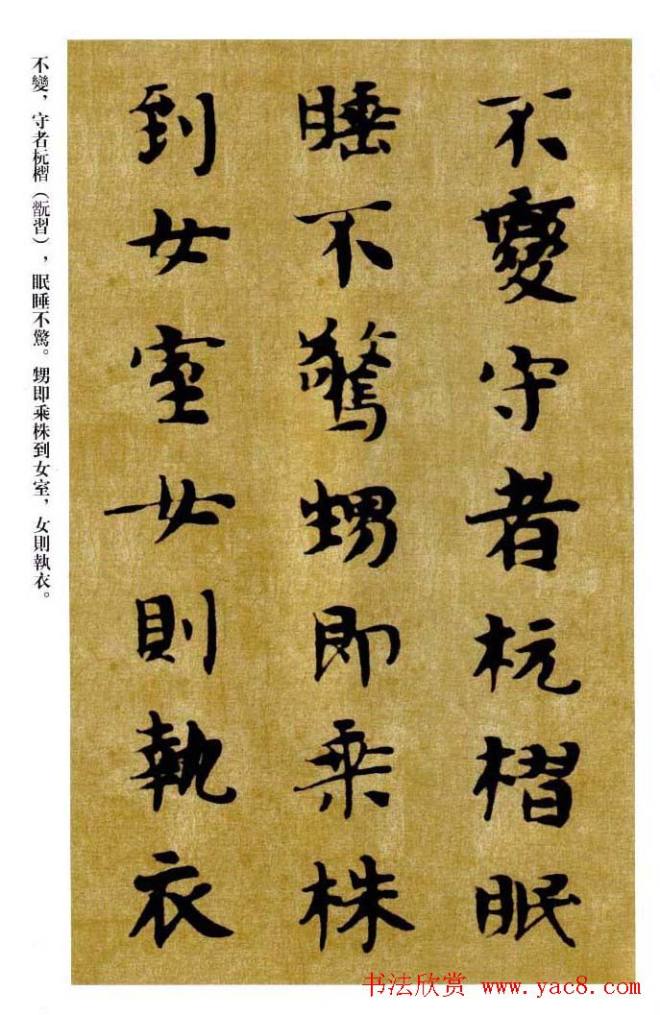 不變守者杬槢眠
睡不驚甥即乗株
到女室女則執衣
不變，守者杬槢（翫習），眠睡不驚。甥即乘株到女室，女則執衣。
书法欣赏 www.yac8.com